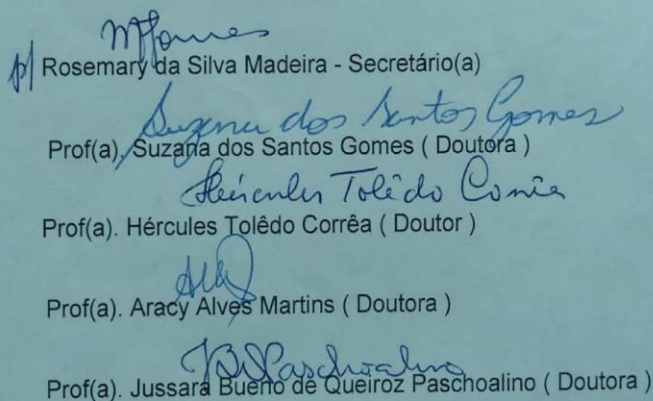 p/ Rosemary da Silva Madeira - Secretário(a)
Suzana dos Santos Gomes
Prof(a). Suzana dos Santos Gomes ( Doutora )
Hércules Tolêdo Corrêa
Prof(a). Hércules Tolêdo Corrêa ( Doutor )
Prof(a). Aracy Alves Martins ( Doutora )
JBQPaschoalino
Prof(a). Jussara Bueno de Queiroz Paschoalino ( Doutora )